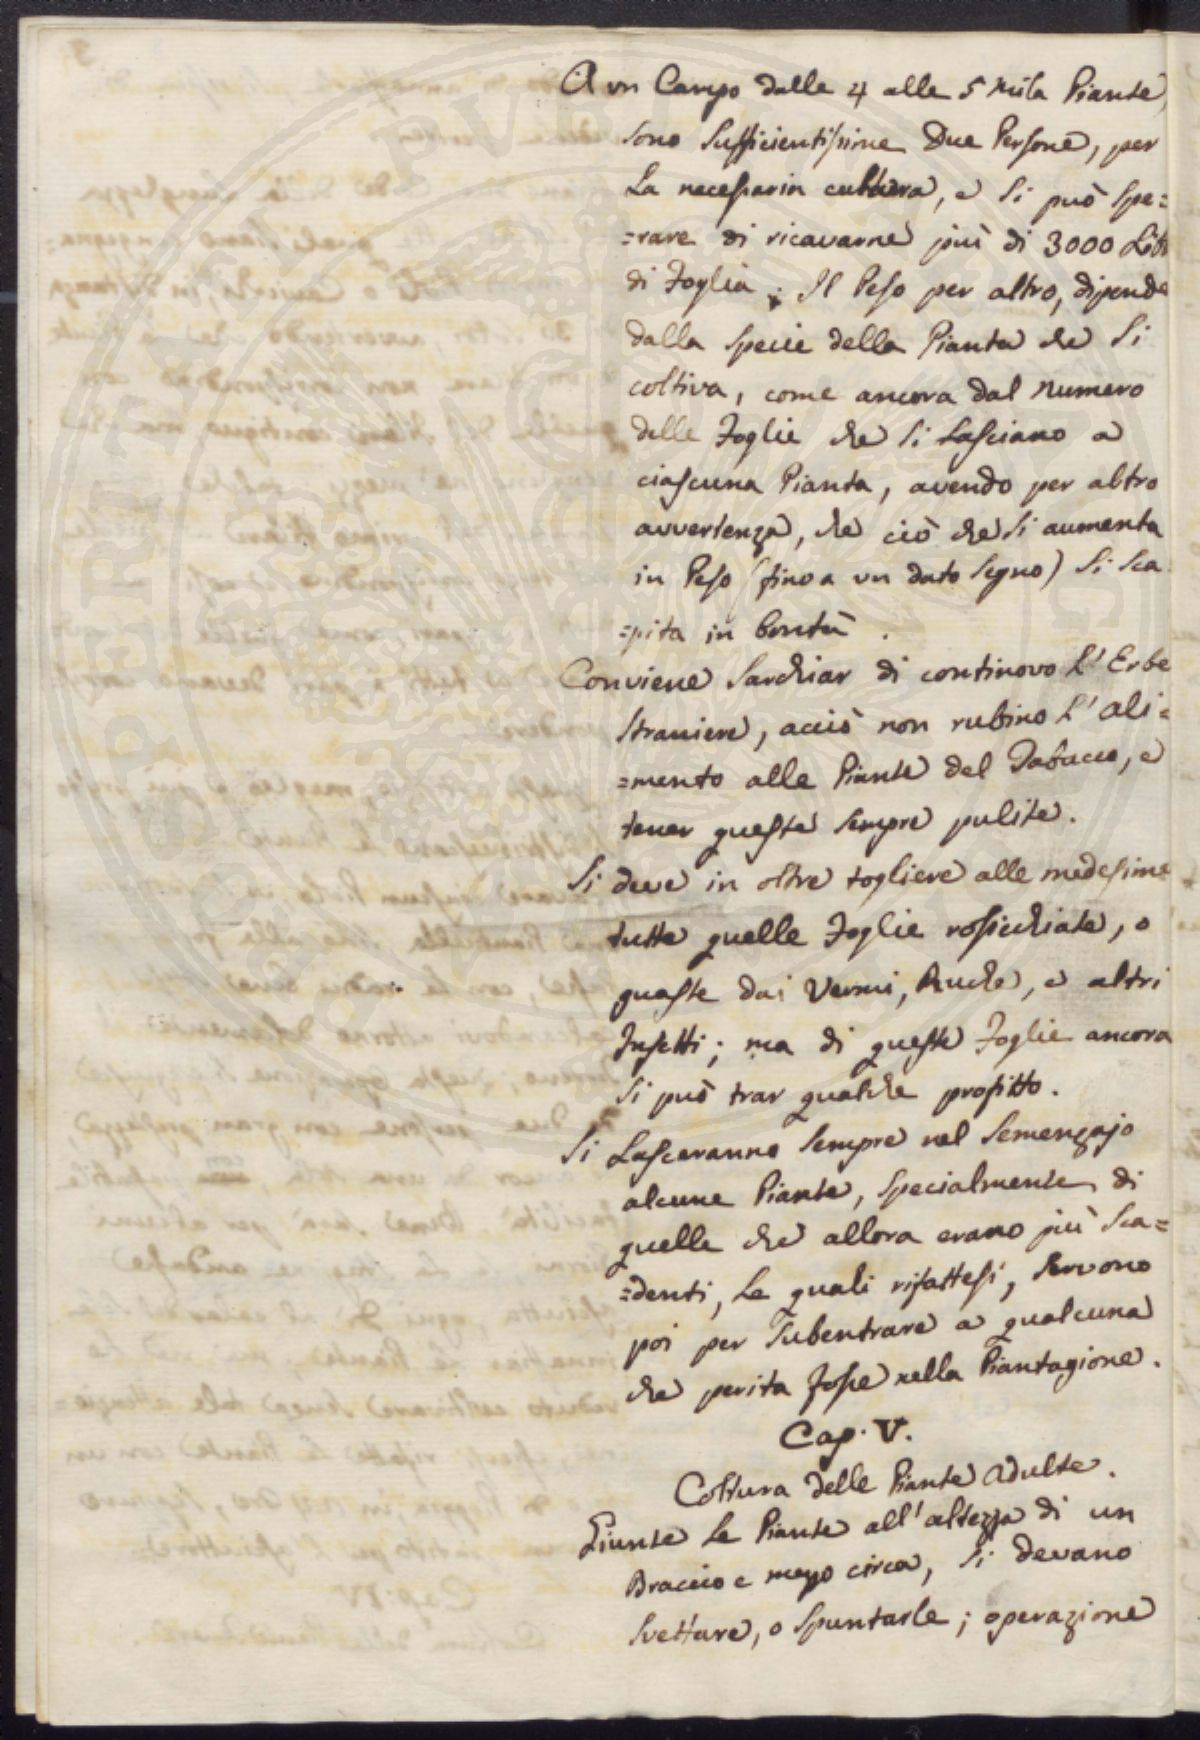 A un Campo dalle 4 alle 5 Mila Piante,
sono sufficientissime Due Persone, per
La necessaria cultura, e si può spe=
=rare di ricavarne più di 3000 Lib
di Foglia; Il Peso per altro, dipende
dalla specie della Pianta che si
coltiva, come ancora dal numero
delle Foglie che si Lasciano a
ciascuna Pianta, avendo per altro
avvertenza, che ciò che si aumenta
in Peso (fino a un dato segno) si sca
=pita in bontà.
Conviene Sarchiar di continovo L'Erbe
straniere, acciò non rubino L'ali=
=mento alle Piante del Tabacco, e
tener queste sempre pulite.
Si deve in oltre togliere alle medesime
tutte quelle Foglie rosicchiate, o
guaste dai Vermi, Ruche, e altri
Insetti; ma di queste Foglie ancora
si può trar qualche profitto.
Si Lasceranno sempre nel Semenzajo
alcune Piante, specialmente di
quelle che allora erano più sca=
=denti, Le quali rifattesi, servono
poi per subentrare a qualcuna
che perita fosse nella Piantagione.
Cap. V.
Coltura delle Piante Adulte.
Giunte Le Piante all'altezza di un
Braccio e mezzo circa, si devano
svettare, o spuntarle; operazione